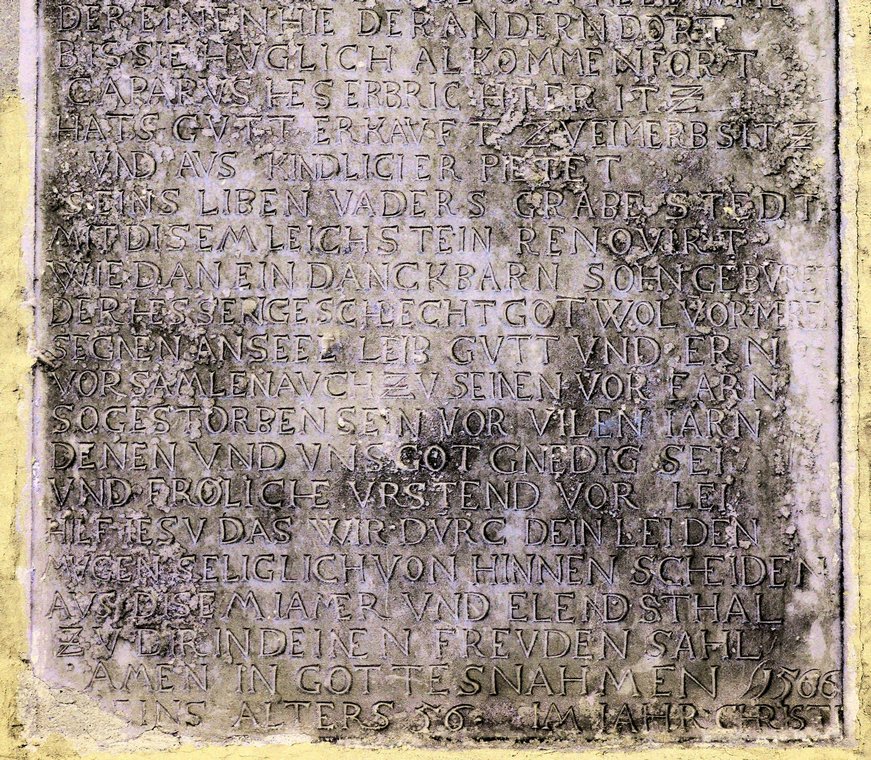 DER EINEN HIE DER ANDERN DORT
BIS SIE HVGLICH ALKOMMEN FORT
CAPARVS HES ERBRICHTER IT Z
HATS GVTT ERKAVFT ZVEIM ERBSITZ
VND AVS KINDLICIER PIETET
SEINS LIBEN VADERS GRABE STEDT
MIT DISEM LEICHSTEIN RENOVIRT
WIE DAN EIN DANCKBARN SOHN GEBVRET
DER HESSEN GESCHLECHT GOT WOL VORMEREN
SEGNEN AN SEEL LEIB GVTT VND ERN
VORSAMLEN AVCH ZV SEINEN VOR FARN
SO GESTORBEN SEIN VOR VILEN IARN
DENEN VND VNS GOT GNEDIG SEI
VND FROLICHE VRSTEND VOR LEI
HILF IESV DAS WIR DVRC DEIN LEIDEN
MVGEN SELIGLICH VON HINNEN SCHEIDEN
AVS DISEM IAMER VND ELENDSTHAL
ZV DIR IN DEINEN FREVDEN SAHL
AMEN IN GOTTES NAHMEN 1566
SEINS ALTERS 56 IM JAHR CHRSTI